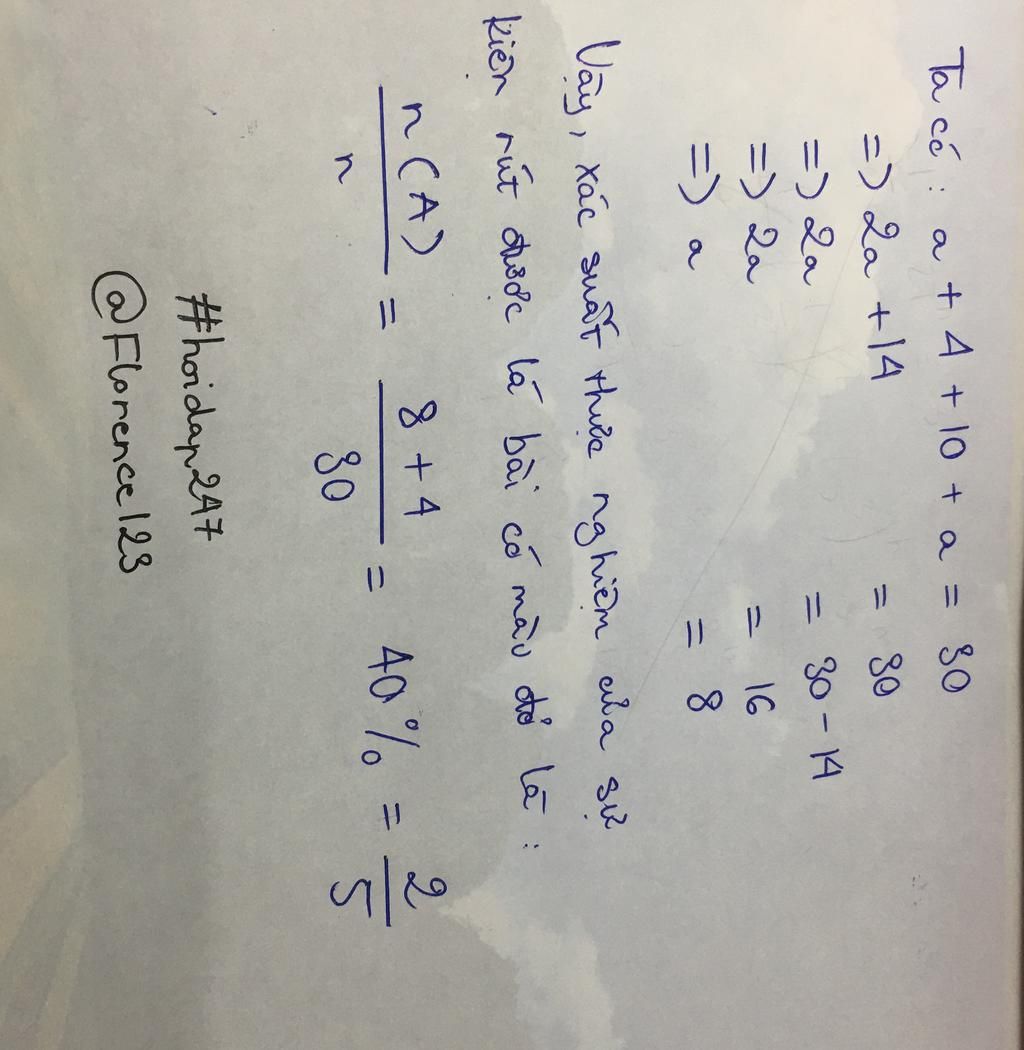 Ta có: a + 4 + 10 + a = 30
=> 2a + 14 = 30
=> 2a = 30 - 14
=> 2a = 16
=> a = 8
Vậy, xác suất thực nghiệm của sự
kiện rút được lá bài có màu đỏ là:
n(A)/n = (8 + 4)/30 = 40% = 2/5
#hoidap247
@Florence123